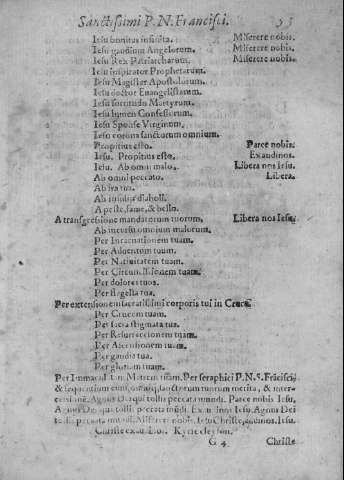 Sanctissimi P. N. Francisci. 53
Iesu bonitas infinita. Miserere nobis.
Iesu gaudium Angelorum. Miserere nobis.
Iesu Rex Patriarcharum. Miserere nobis.
Iesu inspirator Prophetarum.
Iesu Magister Apostolorum.
Iesu doctor Euangelistarum.
Iesu fortitudo Martyrum.
Iesu lumen Confessorum.
Iesu Sponse Virginum.
Iesu corona sanctorum omnium.
Propitius esto. Parce nobis.
Iesu. Propitius esto. Exaudi nos.
Iesu. Ab omni malo. Libera nos Iesu.
Ab omni peccato. Libera.
Ab ira tua.
Ab insidijs diaboli.
A peste, fame, & bello.
A transgressione mandatorum tuorum, Libera nos Iesu.
Ab incursu omnium malorum.
Per Incarnationem tuam.
Per Aduentum tuum.
Per Natiuitatem tuam.
Per Circumcisionem tuam.
Per dolores tuos.
Per flagella tua.
Per extensionem sacratissimi corporis tui in Cruce.
Per Crucem tuam.
Per sacra stigmata tua.
Per Resurrectionem tuam.
Per Ascensionem tuam.
Per gaudia tua.
Per gloriam tuam.
Per Immaculatam Matrem tuam. Per seraphici P. N. S. Frācisci
& sequacium eius, omniumq, sanctorum tuorum merita, & inter-
cessionē. Agnus Dei qui tollis peccata mundi. Parce nobis Iesu.
Agnus Dei qui tollis peccata mūdi. Exaudi nos Iesu. Agnus Dei
tollis peccata mundi. Miserere nobis. Iesu Christe, audi nos. Iesu
Christe exaudi nos. Kyrie eleyson.
G 4. Christe